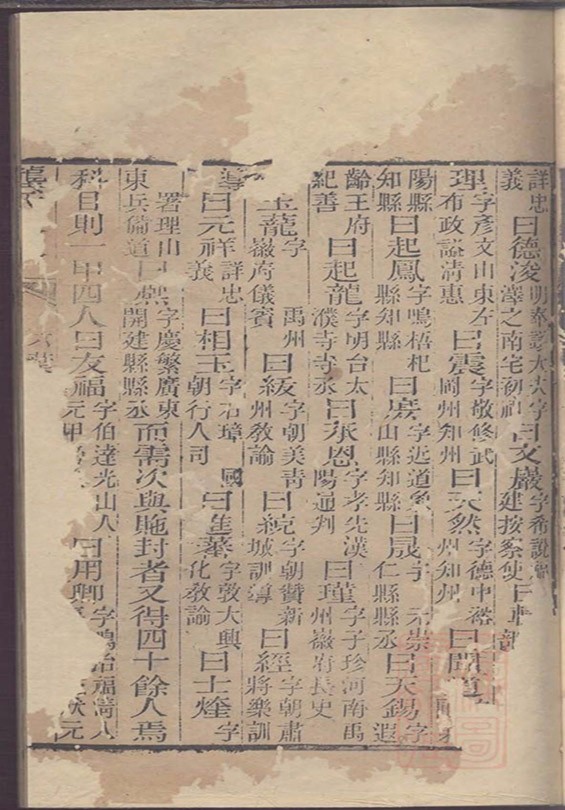 詳忠義曰德浚明奉議大夫字澤之南宅初祖曰文巖字希說建按察使曰
理字彥文山東左布政諡清惠曰震字敬修武岡州知州曰天然字德中裕州知州曰
陽縣知縣曰起鳳字鳴梧杞縣知縣曰字近道山縣知縣曰晟字元崇仁縣縣丞曰天錫字遐
齡王府紀善曰起龍字明台太濮寺寺丞曰承恩字孝先漢陽通判曰瑾字子珍河南禹州徽府長史
玉龍字禹州徽府儀賓曰紱字朝美青州教諭曰統字朝贊新城訓導曰經字朝肅將樂訓
導曰元祥詳忠義曰相玉字石璋朝行人司曰字敦大興化教諭曰士煃字
署理山東兵備道字慶繁廣東開建縣縣丞而需次與貤封者又得四十餘人焉
科目則一甲四人曰友福字伯達光山人元甲曰用卿字鳴治福清人狀元